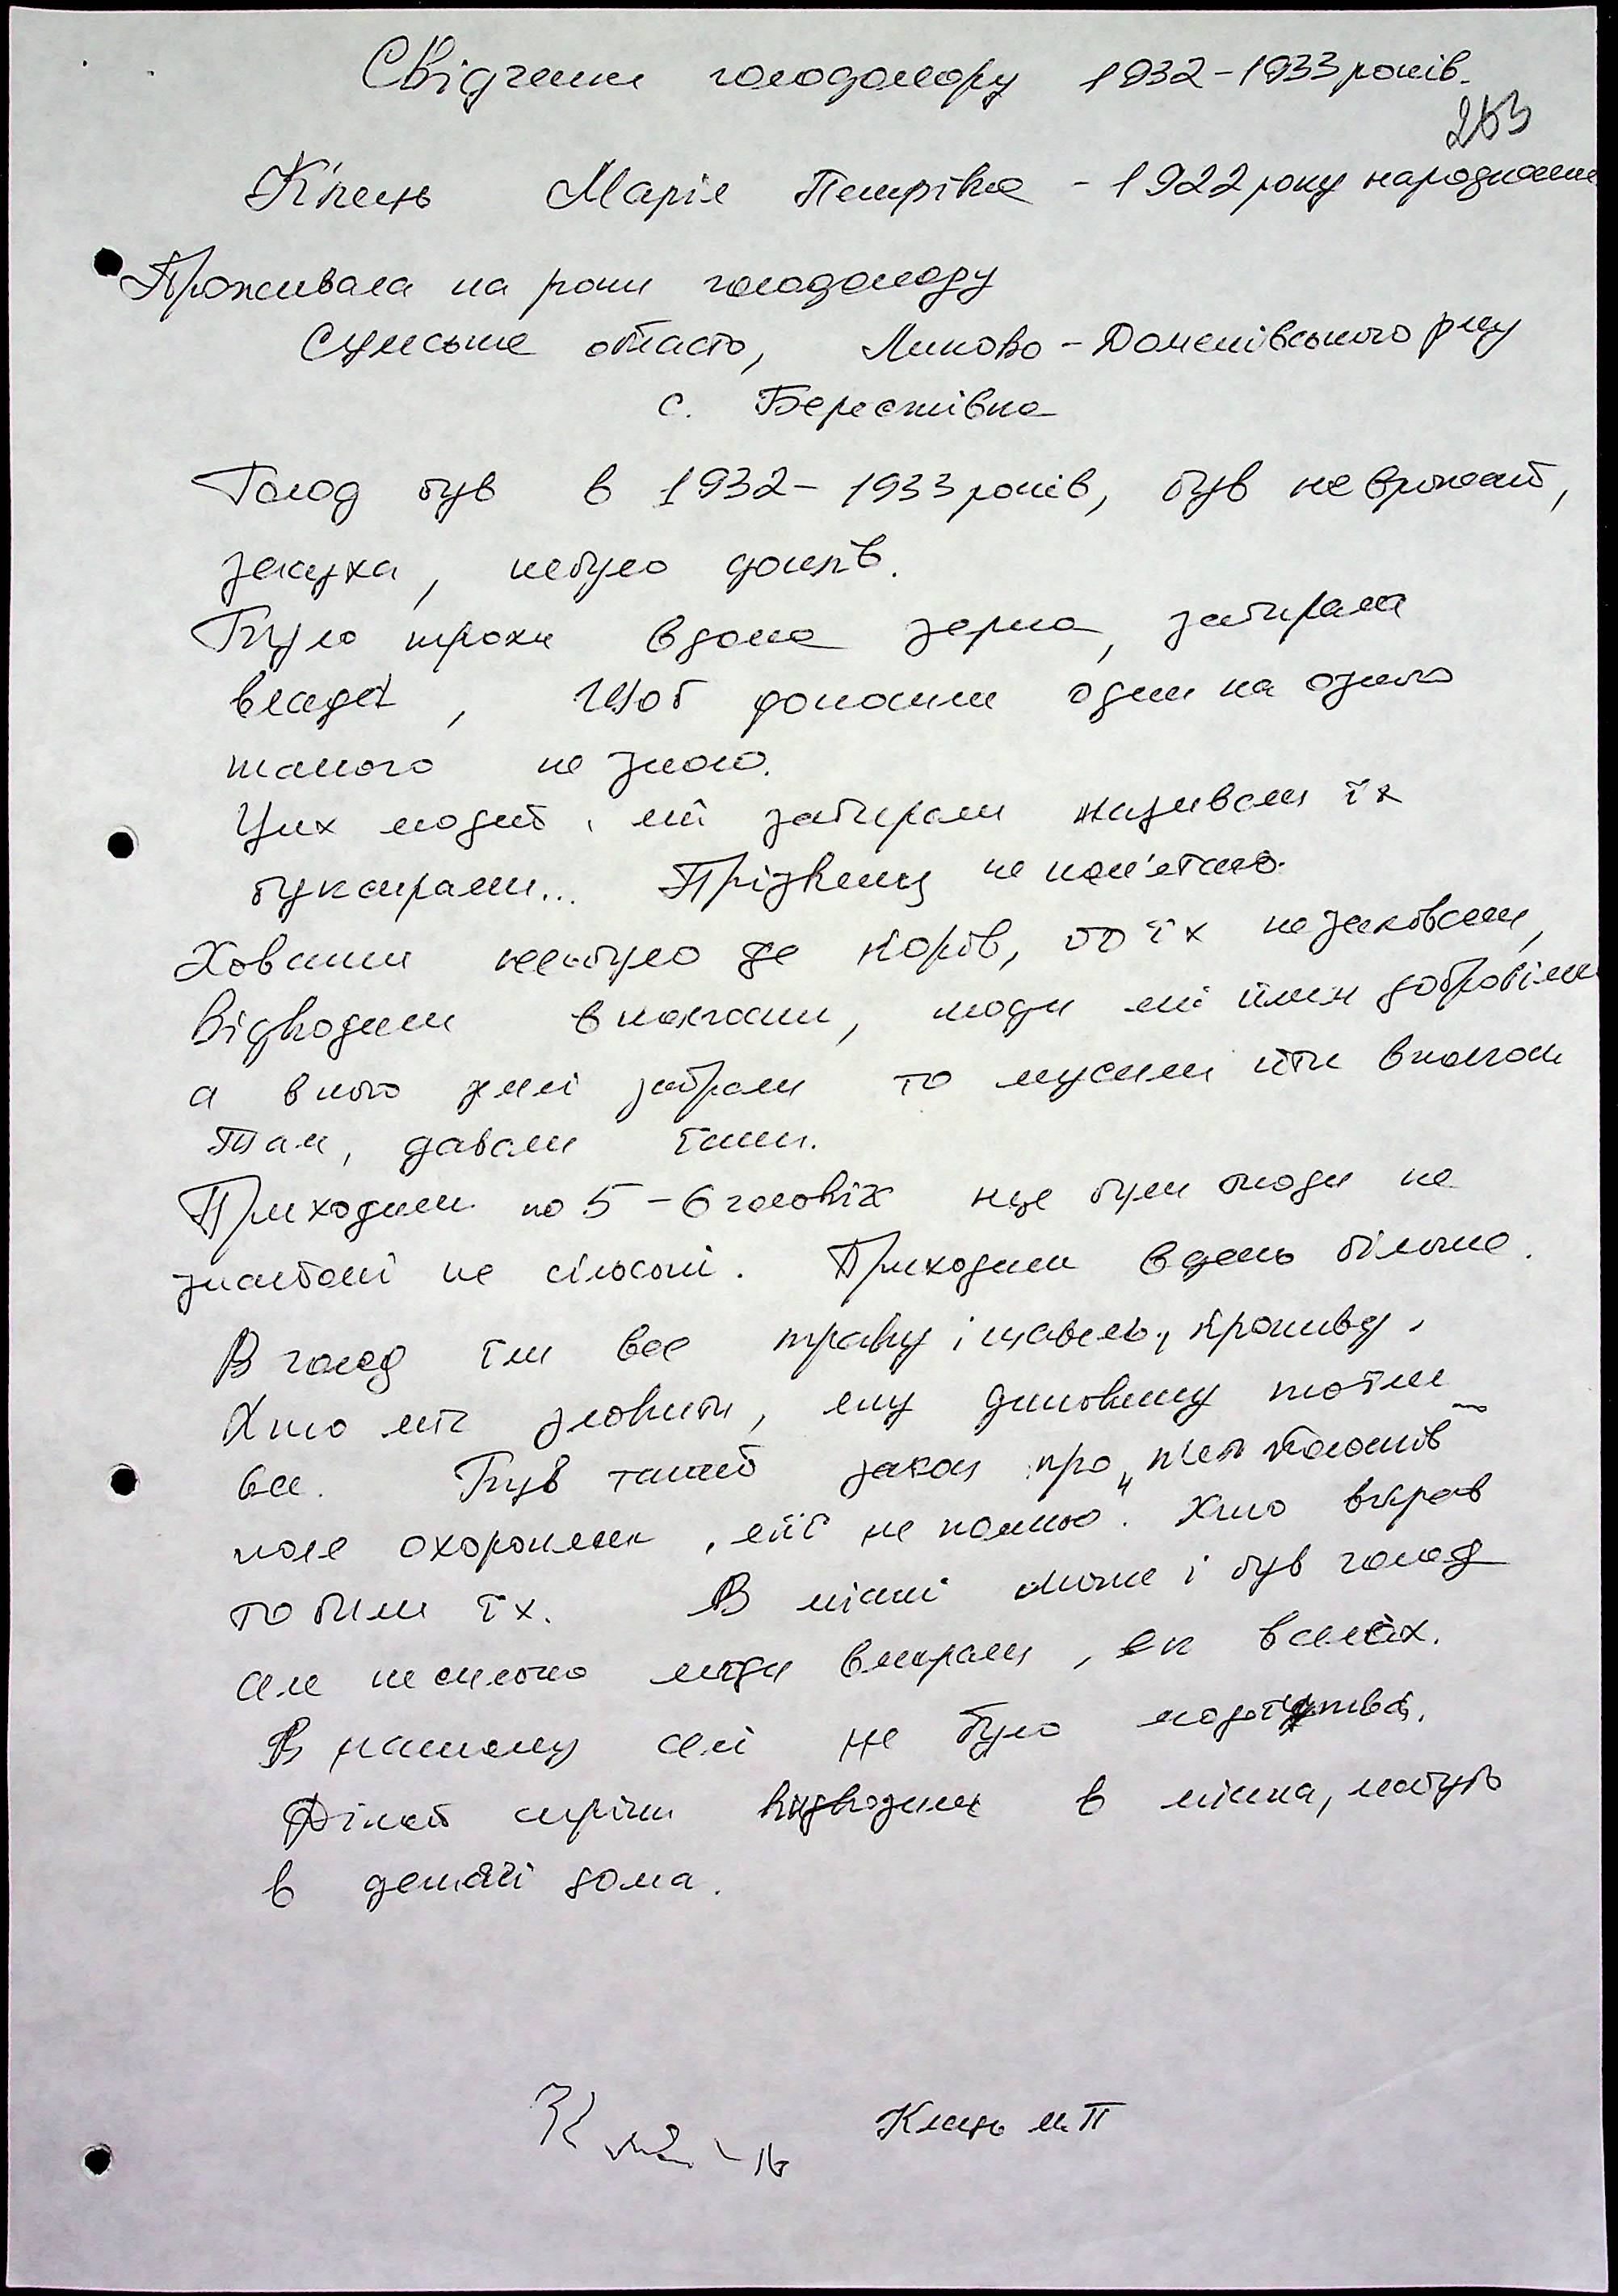 Свідчення голодомору 1932-1933 років.
263
Марія Петрівна - 1922 року народження
Проживала на роки голодомору
Сумська область, Липово-Долинівського р-ну
с. Берестівка
Голод був в 1932-1933 років, був не врожай,
засуха, небуло дощів.
Було трохи вдома зерна, забирала
влада, Щоб доносили один на одного
такого не знаю.
Цих людей, які забирали називали їх
буксирами... Прізвищ не пам'ятаю.
Ховати небуло де корів, бо їх не заховаєш,
Відводили в колгоспи, люди які йшли добровільно
а в кого землі забрали то мусили йти в колгосп
Там, давали їсти.
Приходили по 5-6 чоловік це були люди не
знайомі не сільські. Приходили вдень більше.
В голод їли все траву і щавель, кропиву,
Хто міг зловити, яку дичовину то їли
все. Був такий закон про "п'ять колосків"
поле охороняли, я її не помню". Хто вкрав
то били їх. В місті може і був голод
але не сильно люди вмирали, як в селах.
В нашому селі не було людоїдства.
Дітей сиріт відводили в міста, мабуть
в дитячі дома.
М П